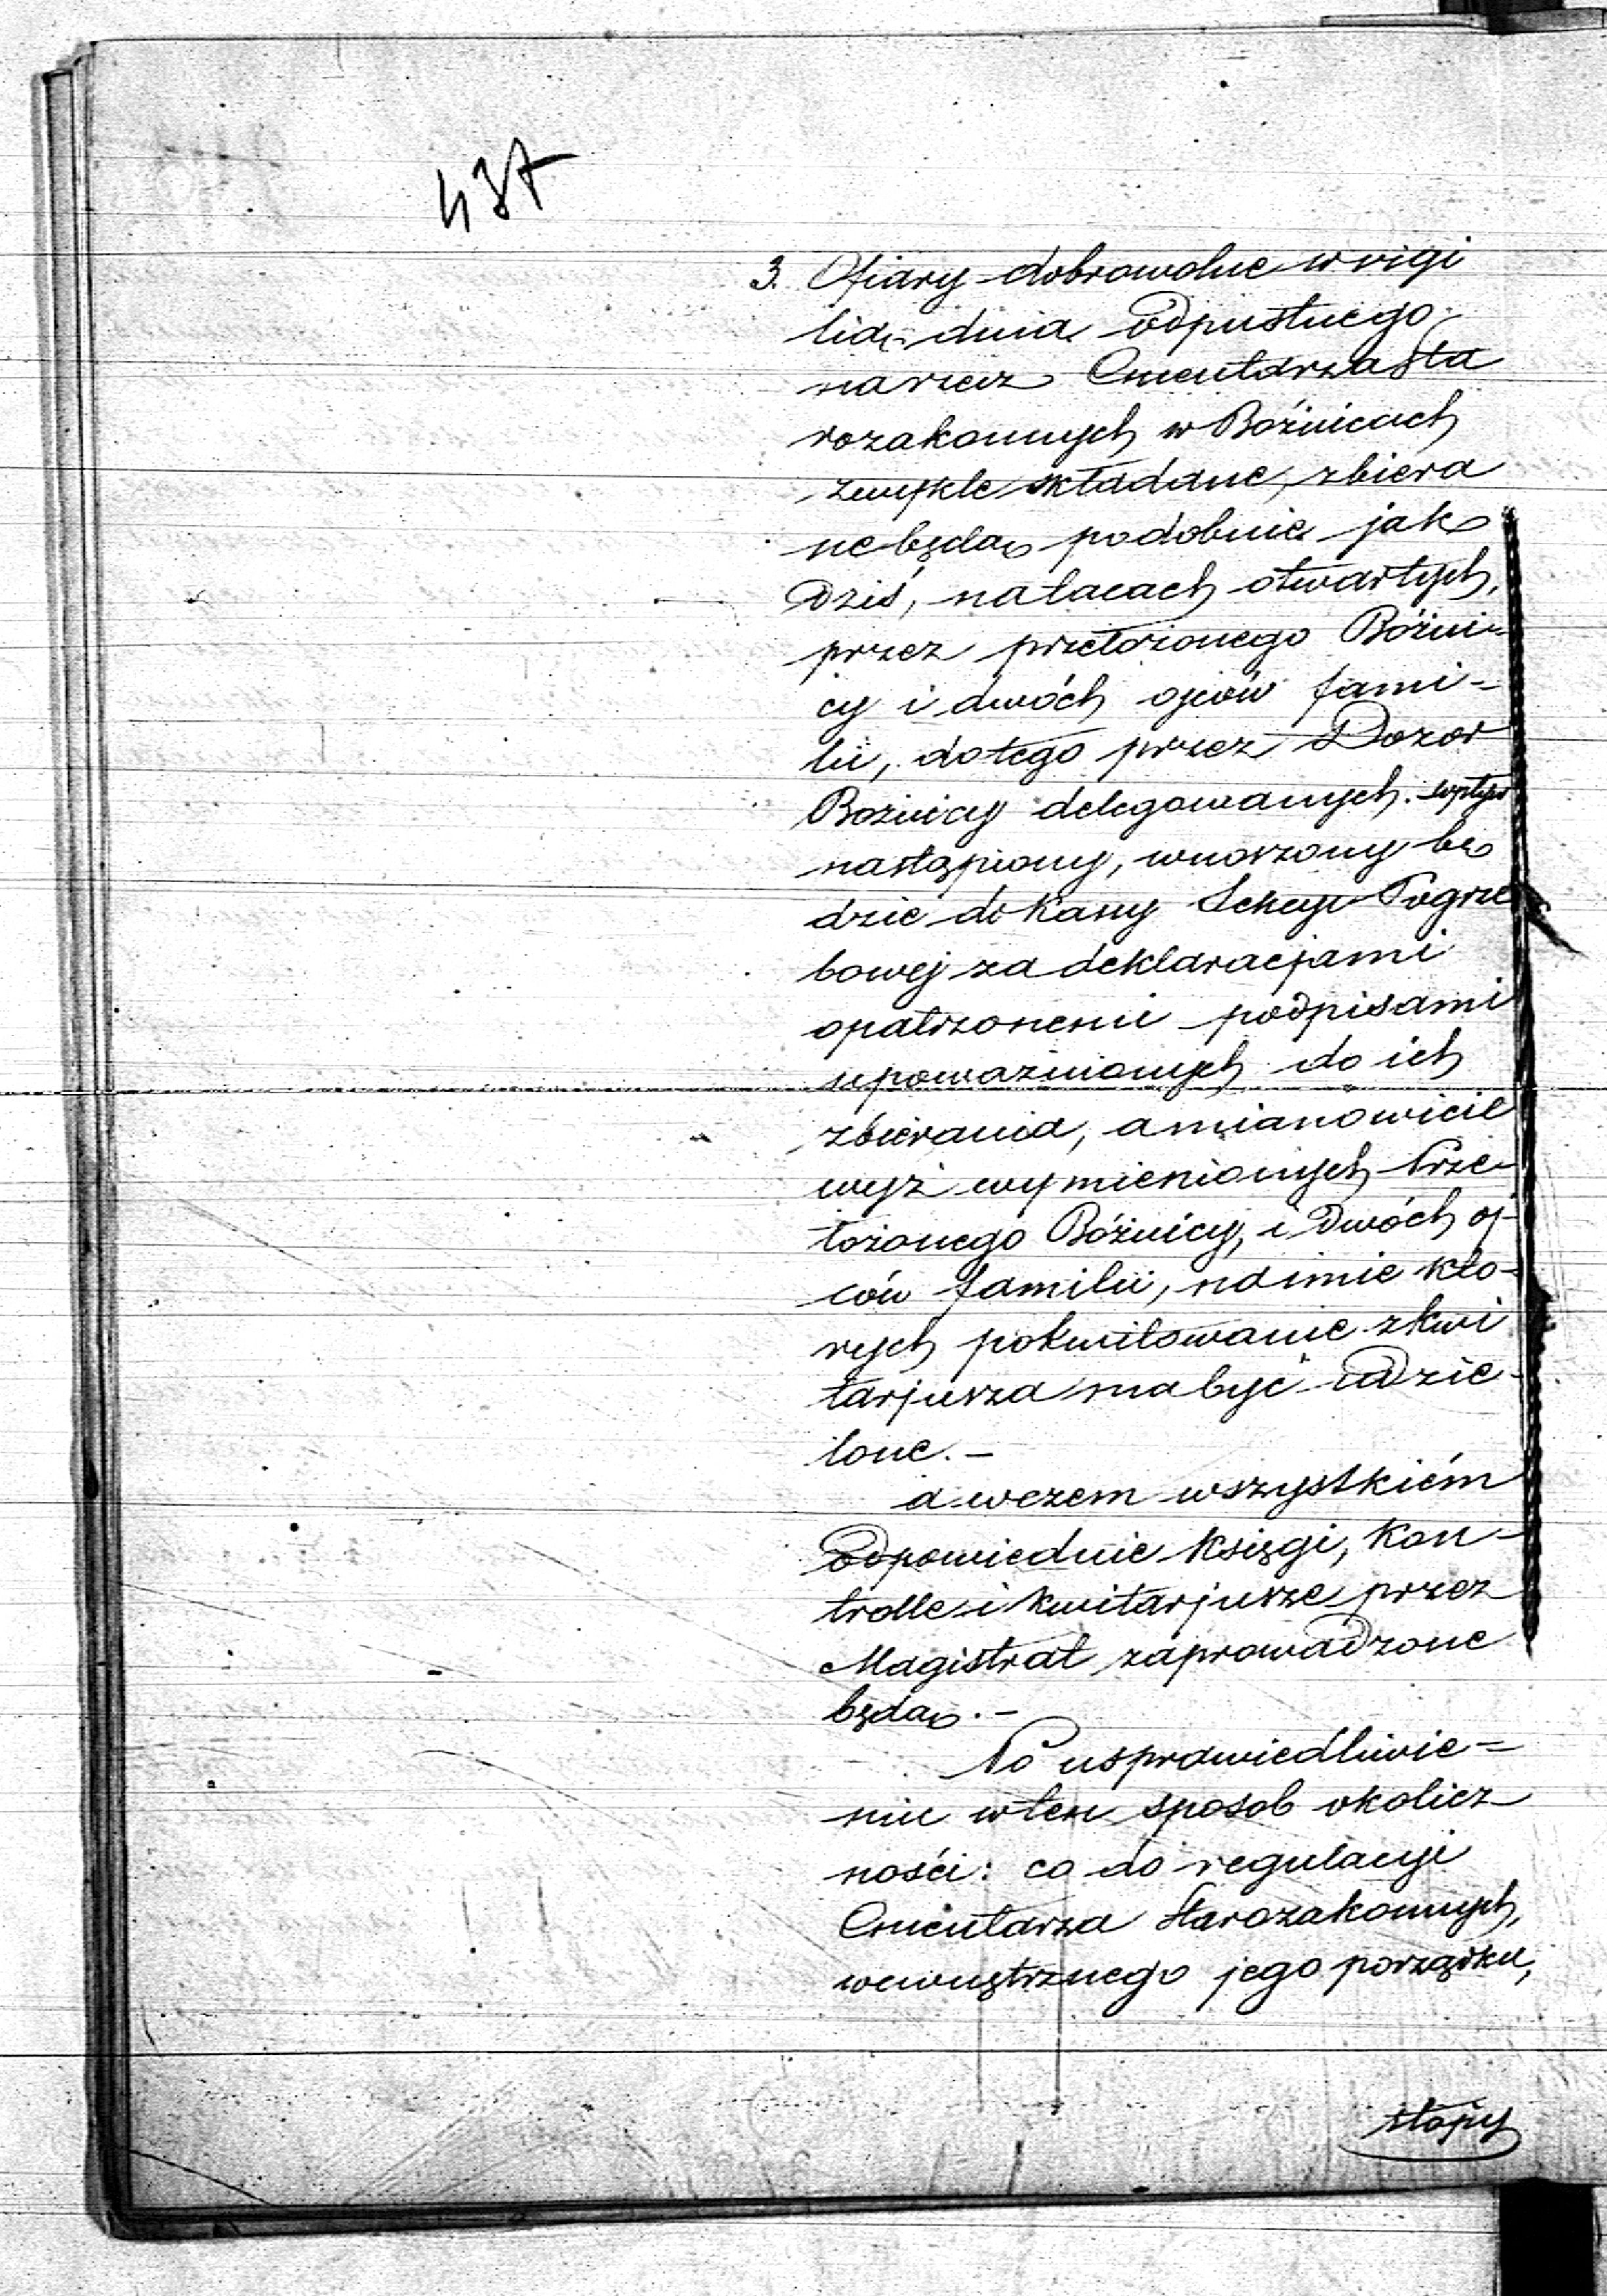 437
3. Ofiary dobrowolne w wigi
lią dnia odpustnego
na rzecz Cmentarza Sta
rozakonnych w Bóżnicach
zwykle składane, zbiera
ne będą podobnie jak
dziś, na tacach otwartych,
przez przełożonego Bóżni-
cy i dwóch ojców fami-
lii, do tego przez Dozor
Bożnicy delegowanych. wpływ
nastąpiony, wnoszony bę
dzie do Kassy Sekcyi Pogrze
bowej za deklaracjami
opatrzonemi podpisami
upoważnionych do ich
zbierania, a mianowicie
wyż wymienionych Prze-
łożonego Bóżnicy, i dwóch oj-
ców familii, na imie któ-
rych pokwitowanie z kwi
tarjusza ma być udzie-
lone. -
a w czem wszystkiém
odpowiednie Księgi, Kon-
trolle i kwitarjusze przez
Magistrat zaprowadzone
będą. -
Po usprawiedliwie-
niu w ten sposob okolicz
nośći: co do regulacyi
Cmentarza Starozakonnych,
wewnętrznego jego porządku,
stopy